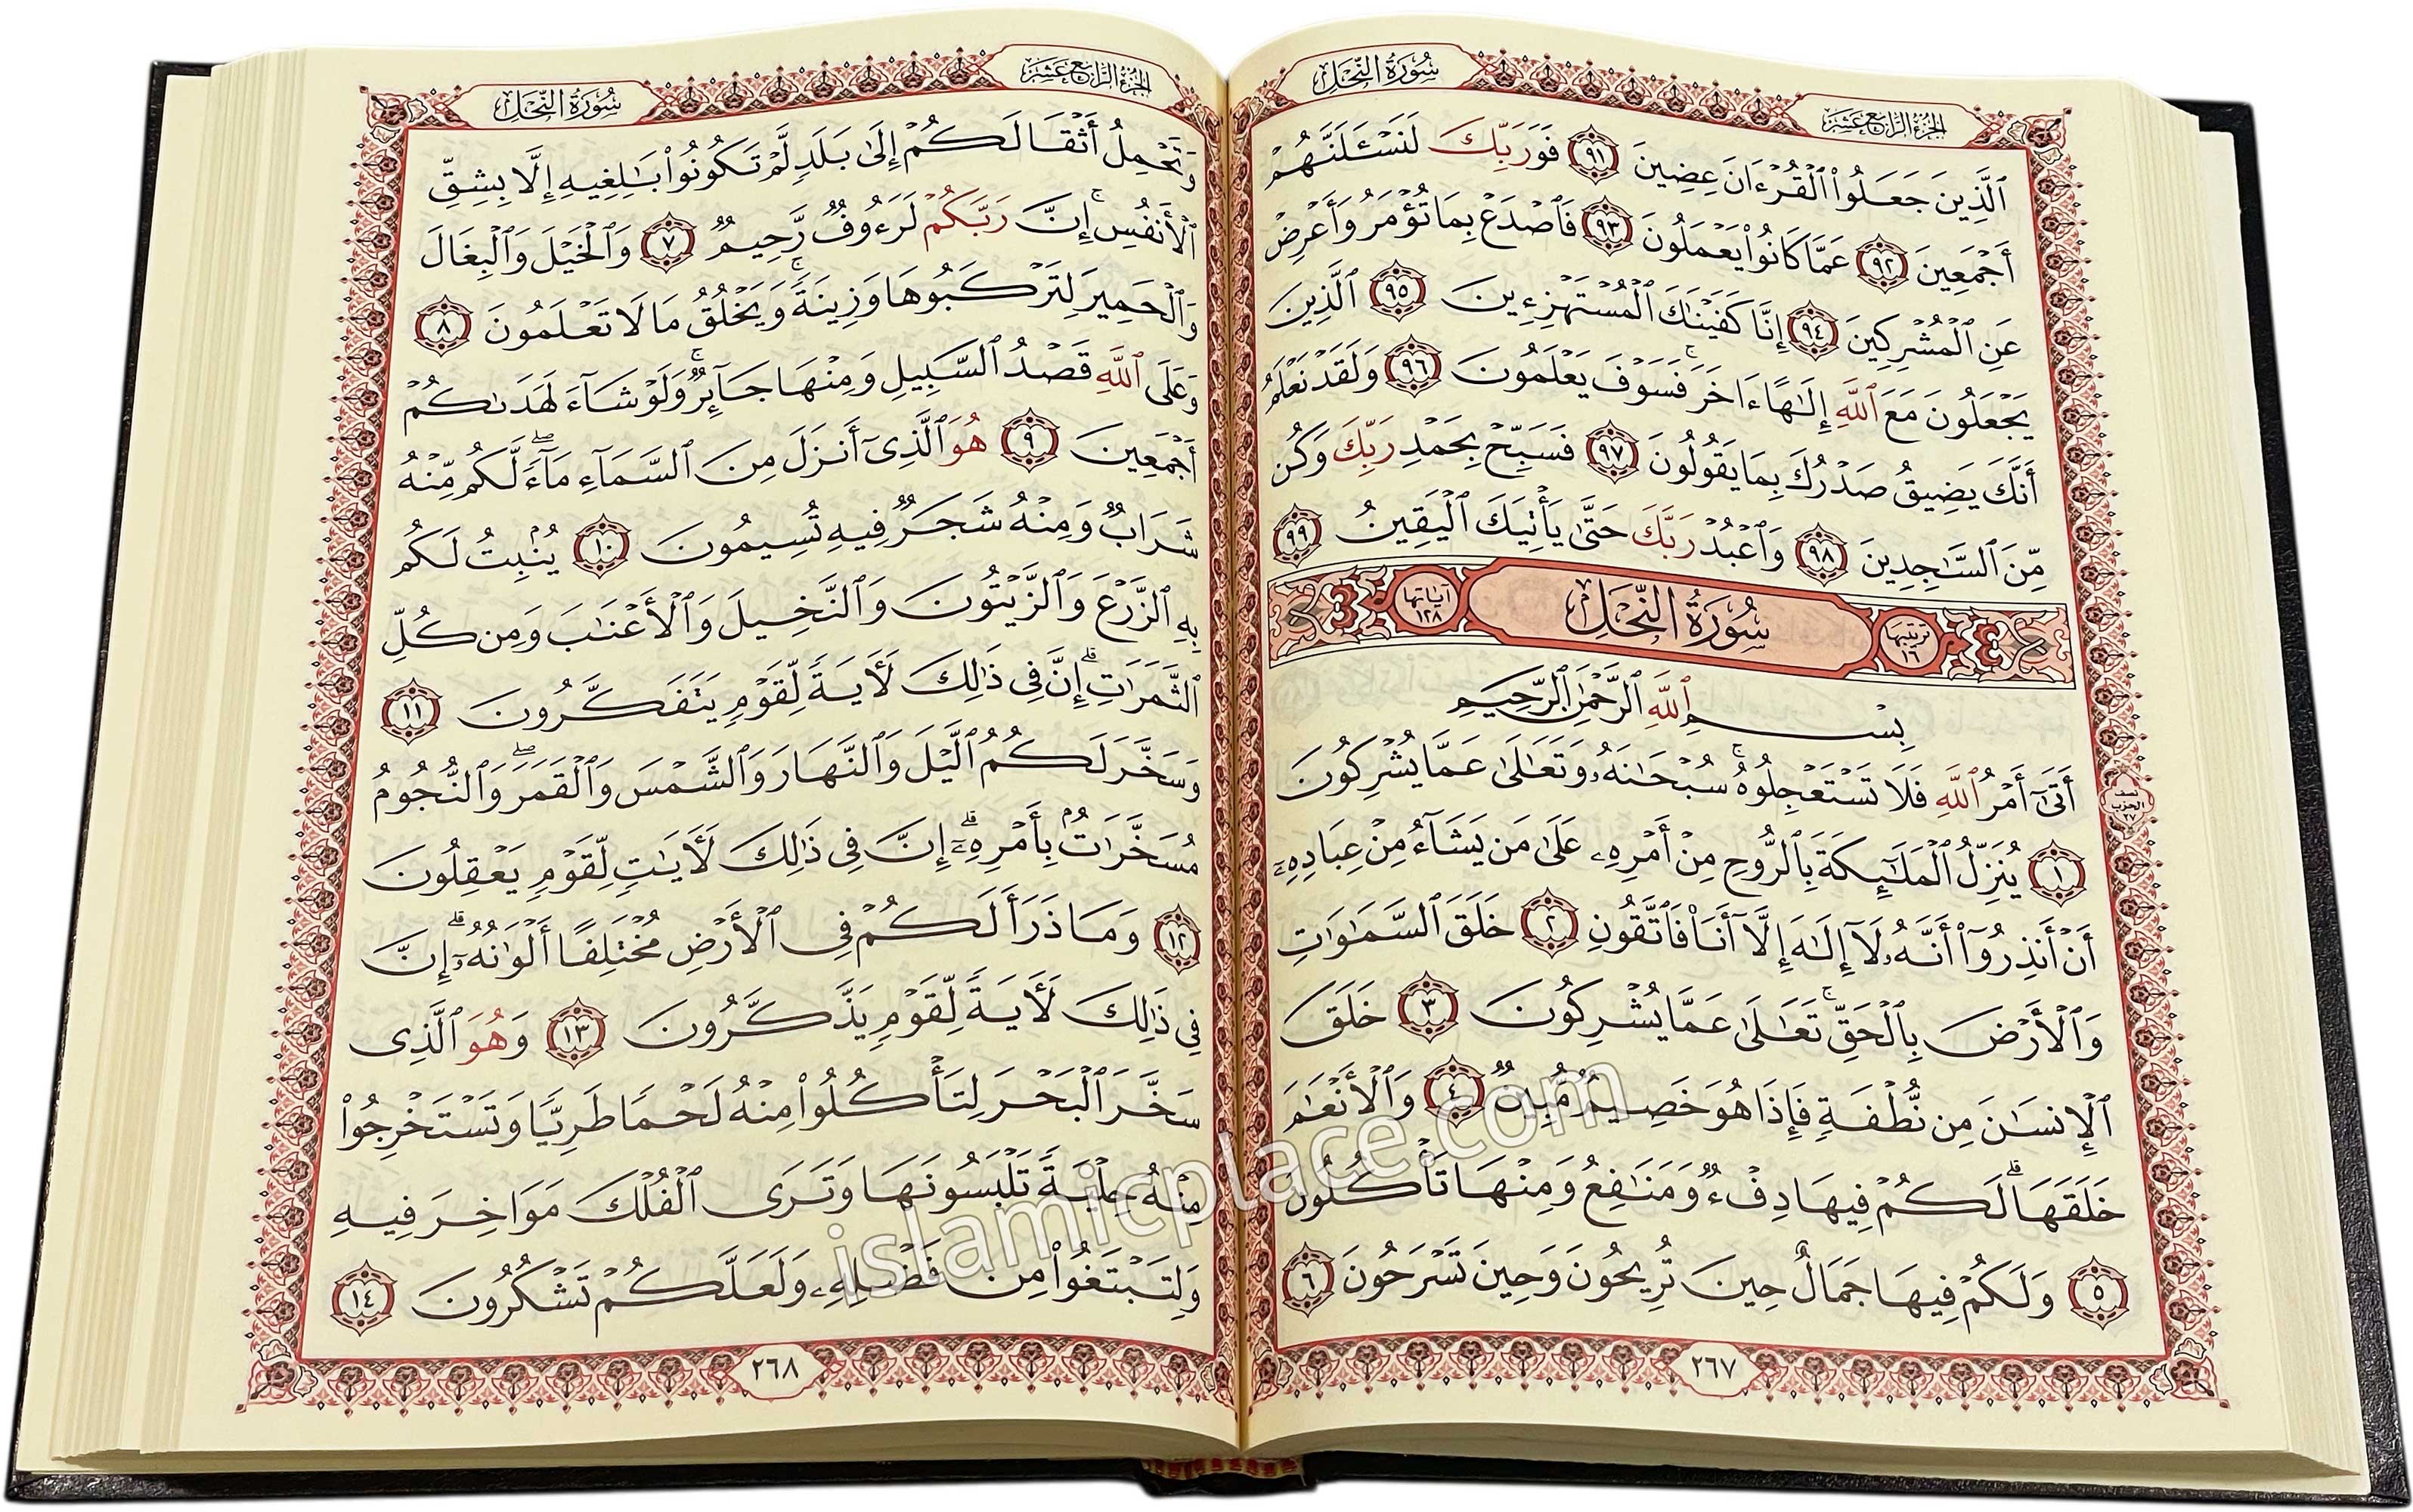 سُورَةُ النَّحْلِ
الجُزْءُ الرَّابِعَ عَشَرَ
ٱلَّذِينَ جَعَلُوا۟ ٱلْقُرْءَانَ عِضِينَ ٩١ فَوَرَبِّكَ لَنَسْـَٔلَنَّهُمْ
أَجْمَعِينَ ٩٢ عَمَّا كَانُوا۟ يَعْمَلُونَ ٩٣ فَٱصْدَعْ بِمَا تُؤْمَرُ وَأَعْرِضْ
عَنِ ٱلْمُشْرِكِينَ ٩٤ إِنَّا كَفَيْنَـٰكَ ٱلْمُسْتَهْزِءِينَ ٩٥ ٱلَّذِينَ
يَجْعَلُونَ مَعَ ٱللَّهِ إِلَـٰهًا ءَاخَرَ ۚ فَسَوْفَ يَعْلَمُونَ ٩٦ وَلَقَدْ نَعْلَمُ
أَنَّكَ يَضِيقُ صَدْرُكَ بِمَا يَقُولُونَ ٩٧ فَسَبِّحْ بِحَمْدِ رَبِّكَ وَكُن
مِّنَ ٱلسَّـٰجِدِينَ ٩٨ وَٱعْبُدْ رَبَّكَ حَتَّىٰ يَأْتِيَكَ ٱلْيَقِينُ ٩٩
ترتيبها ١٦ سُورَةُ النَّحْلِ آياتها ١٢٨
بِسْمِ ٱللَّهِ ٱلرَّحْمَـٰنِ ٱلرَّحِيمِ
أَتَىٰٓ أَمْرُ ٱللَّهِ فَلَا تَسْتَعْجِلُوهُ ۚ سُبْحَـٰنَهُۥ وَتَعَـٰلَىٰ عَمَّا يُشْرِكُونَ
نصف الحزب ٢٧
١ يُنَزِّلُ ٱلْمَلَـٰٓئِكَةَ بِٱلرُّوحِ مِنْ أَمْرِهِۦ عَلَىٰ مَن يَشَآءُ مِنْ عِبَادِهِۦٓ
أَنْ أَنذِرُوٓا۟ أَنَّهُۥ لَآ إِلَـٰهَ إِلَّآ أَنَا۠ فَٱتَّقُونِ ٢ خَلَقَ ٱلسَّمَـٰوَٰتِ
وَٱلْأَرْضَ بِٱلْحَقِّ ۚ تَعَـٰلَىٰ عَمَّا يُشْرِكُونَ ٣ خَلَقَ
ٱلْإِنسَـٰنَ مِن نُّطْفَةٍ فَإِذَا هُوَ خَصِيمٌ مُّبِينٌ ٤ وَٱلْأَنْعَـٰمَ
خَلَقَهَا ۗ لَكُمْ فِيهَا دِفْءٌ وَمَنَـٰفِعُ وَمِنْهَا تَأْكُلُونَ
٥ وَلَكُمْ فِيهَا جَمَالٌ حِينَ تُرِيحُونَ وَحِينَ تَسْرَحُونَ ٦
٢٦٧
الجُزْءُ الرَّابِعَ عَشَرَ
سُورَةُ النَّحْلِ
وَتَحْمِلُ أَثْقَالَكُمْ إِلَىٰ بَلَدٍ لَّمْ تَكُونُوا۟ بَـٰلِغِيهِ إِلَّا بِشِقِّ
ٱلْأَنفُسِ ۚ إِنَّ رَبَّكُمْ لَرَءُوفٌ رَّحِيمٌ ٧ وَٱلْخَيْلَ وَٱلْبِغَالَ
وَٱلْحَمِيرَ لِتَرْكَبُوهَا وَزِينَةً ۚ وَيَخْلُقُ مَا لَا تَعْلَمُونَ ٨
وَعَلَى ٱللَّهِ قَصْدُ ٱلسَّبِيلِ وَمِنْهَا جَآئِرٌ ۚ وَلَوْ شَآءَ لَهَدَىٰكُمْ
أَجْمَعِينَ ٩ هُوَ ٱلَّذِىٓ أَنزَلَ مِنَ ٱلسَّمَآءِ مَآءً ۖ لَّكُم مِّنْهُ
شَرَابٌ وَمِنْهُ شَجَرٌ فِيهِ تُسِيمُونَ ١٠ يُنۢبِتُ لَكُم
بِهِ ٱلزَّرْعَ وَٱلزَّيْتُونَ وَٱلنَّخِيلَ وَٱلْأَعْنَـٰبَ وَمِن كُلِّ
ٱلثَّمَرَٰتِ ۗ إِنَّ فِى ذَٰلِكَ لَـَٔايَةً لِّقَوْمٍ يَتَفَكَّرُونَ ١١
وَسَخَّرَ لَكُمُ ٱلَّيْلَ وَٱلنَّهَارَ وَٱلشَّمْسَ وَٱلْقَمَرَ ۖ وَٱلنُّجُومُ
مُسَخَّرَٰتٌۢ بِأَمْرِهِۦٓ ۗ إِنَّ فِى ذَٰلِكَ لَـَٔايَـٰتٍ لِّقَوْمٍ يَعْقِلُونَ
١٢ وَمَا ذَرَأَ لَكُمْ فِى ٱلْأَرْضِ مُخْتَلِفًا أَلْوَٰنُهُۥٓ ۗ إِنَّ
فِى ذَٰلِكَ لَـَٔايَةً لِّقَوْمٍ يَذَّكَّرُونَ ١٣ وَهُوَ ٱلَّذِى
سَخَّرَ ٱلْبَحْرَ لِتَأْكُلُوا۟ مِنْهُ لَحْمًا طَرِيًّا وَتَسْتَخْرِجُوا۟
مِنْهُ حِلْيَةً تَلْبَسُونَهَا وَتَرَى ٱلْفُلْكَ مَوَاخِرَ فِيهِ
وَلِتَبْتَغُوا۟ مِن فَضْلِهِۦ وَلَعَلَّكُمْ تَشْكُرُونَ ١٤
٢٦٨
islamicplace.com